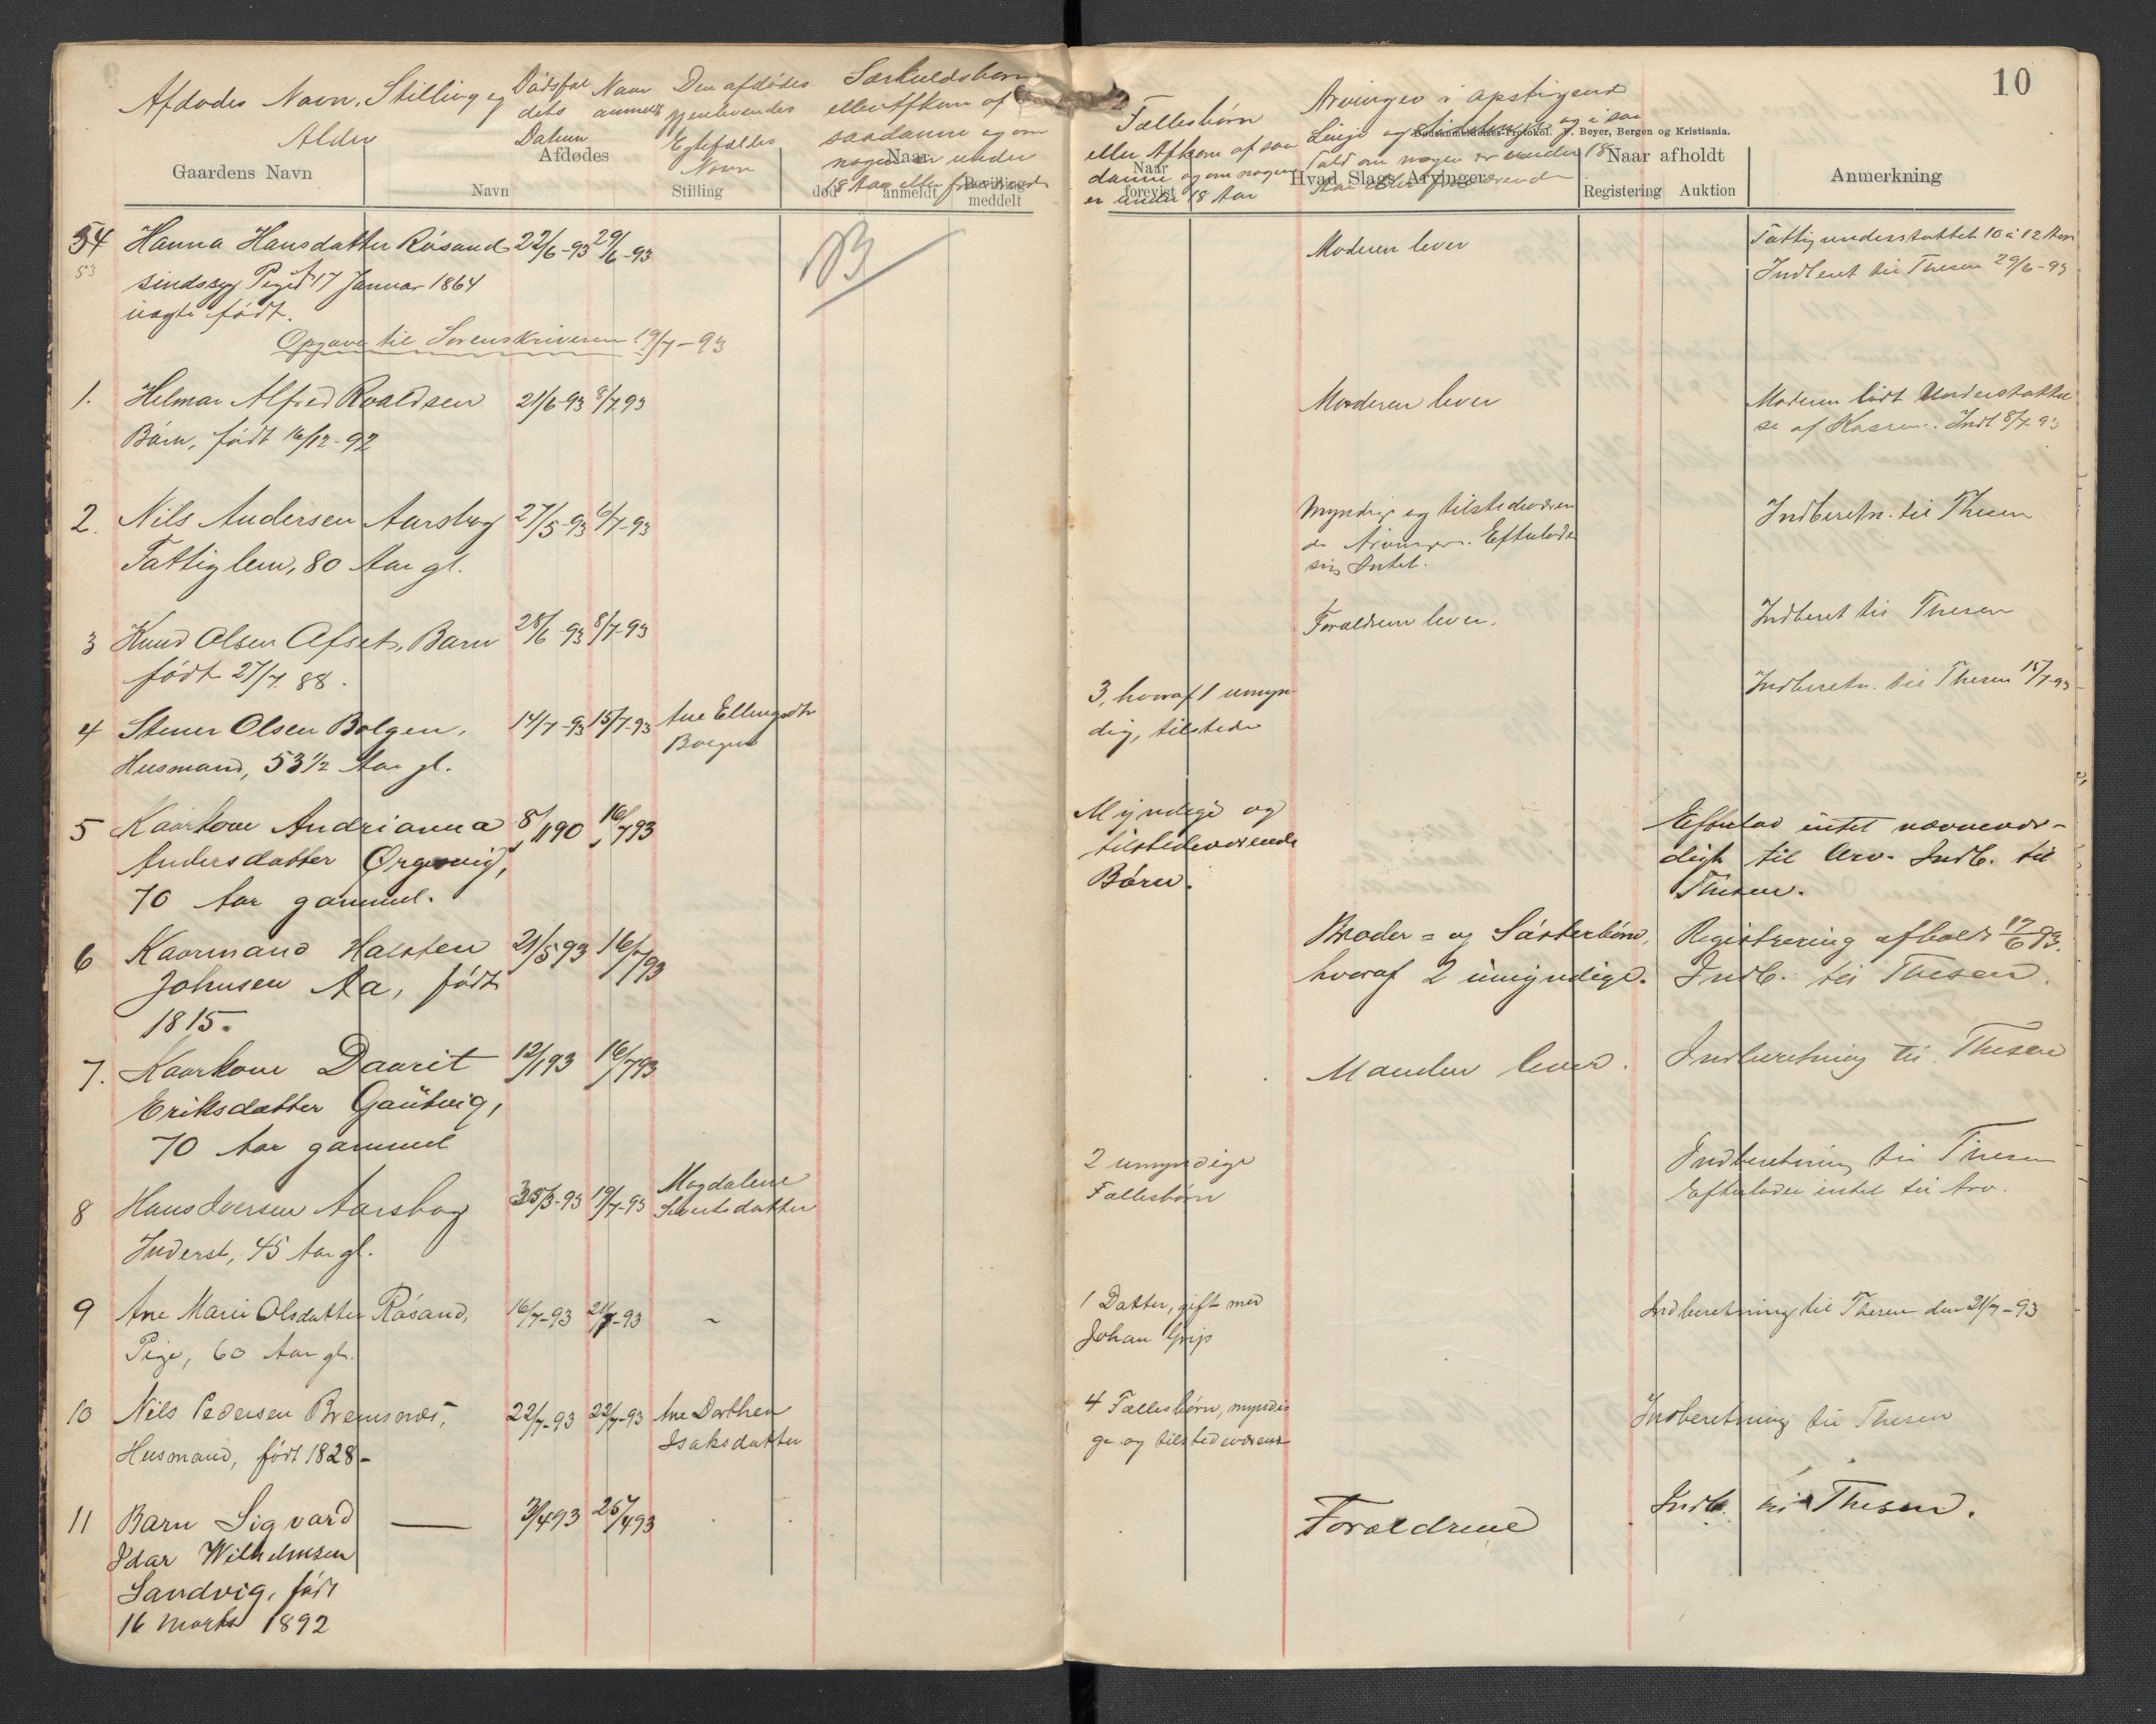 10
Afdødes Navn, Stilling og
Alder
Dødsfal
dets
Datum
Navn
anmeldt
Den afdødes
gjenlevendes
Egtefælles
Navn
Særkuldsbørn
eller Afkom af
saadanne og om
nogen er under
18 Aar eller fraværende
Fællesbørn
eller Afkom af saa
danne og om nogen
er under 18 Aar
Arvinger i opstigende
Linje og Sidelinje og i saa
Fald om nogen er under 18
Aar eller fraværende
Dødsanmeldelses-Protokol. F. Beyer, Bergen og Kristiania.
Gaardens Navn
Afdødes
Navn
Stilling
Naar
død
anmeldt
Bevilling
meddelt
Naar
forevist
Hvad Slags Arvinger
Naar afholdt
Registering
Auktion
Anmerkning
54 Hanna Hansdatter Røsand 22/6-93 29/6-93
53
sindssyg Pige 17 Januar 1864
uægte født.
Moderen lever
Fattigunderstøttet 10 à 12 Aar
Indberet til Thesen 29/6-93
Opgave til Sorenskriveren 19/7-93
1. Helmar Alfred Roaldsen 21/6-93 8/7 93
Barn, født 16/12-92
Moderen lever
Moderen lidt Understøttel
se af Kassen. Indt 8/7 93
2. Nils Andersen Aarsbog 27/5-93 6/7-93
Fattiglem, 80 Aar gl.
Myndige og tilstedeværen
de Arvinger. Efterlod
sig Intet.
Indberetn. til Thesen
3 Knud Olsen Ofset, Barn 28/6-93 8/7-93
født 27/7 88.
Forældrene lever.
Indberet til Thesen
4 Stener Olsen Bolgen, 14/7-93 15/7-93 Ane Ellingsdtr
Bolgen
Husmand, 53 1/2 Aar gl.
3, hvoraf 1 umyn
dig, tilstede
Indberetn. til Thesen 15/7-93
5 Kaarkone Andrianna 8/1 90 16/7 93
Andersdatter Ørgenvig,
70 Aar gammel.
Myndige og
tilstedeværende
Børn.
Efterlod intet nævnevær-
digt til Arv. Indb. til
Thesen.
6 Kaarmand Halsten 21/5 93 16/7 93
Johnsen Aa, født
1815.
Broder- og Søsterbørn,
hvoraf 2 umyndige.
Registrering afholdt 17/6 93.
Indb. til Thesen.
7. Kaarkone Daarit 12/1 93 16/7 93
Eriksdatter Gautvig,
70 Aar gammel
Manden lever.
Indberetning til Thesen
8 Hans Iversen Aarsbog 25/3-93 19/7-93 Magdalene
Sivertsdatter
Inderst, 45 Aar gl.
2 umyndige
Fællesbørn
Indberetning til Thesen
Efterlader intet til Arv.
9 Ane Marie Olsdatter Røsand, 16/7-93 21/7-93 ~
Pige, 60 Aar gl.
1 Datter, gift med
Johan Grip
Indberetning til Thesen den 21/7-93
10 Nils Pedersen Bremsnæs, 22/7-93 22/7-93 Ane Dorthea
Isaksdatter
Husmand, født 1828-
4 Fællesbørn, myndi
ge og tilstedeværend
Indberetning til Thesen
11 Barn Sigvard — 3/4 93 25/7 93
Idar Wilhelmsen
Sandvig, født
16 Marts 1892
Forældrene
Indb. til Thesen.